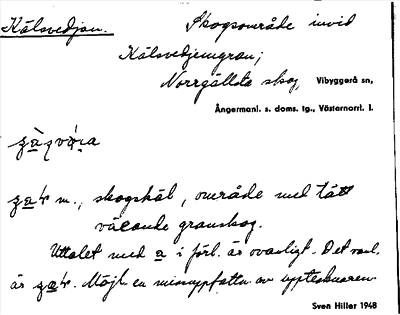 Kälsvedjan.
Skogsområde invid
Kälsvedjemyran;
Norrgällsta skog,
Vibyggerå sn,
Ångermanl. s. doms. tg., Västernorrl. l.
m., skogskäl, område med tätt
växande granskog.
Uttalet med a i förl. är ovanligt. Det vanl.
är Möjl. en missuppfattn. av upptecknaren
Sven Hiller 1948